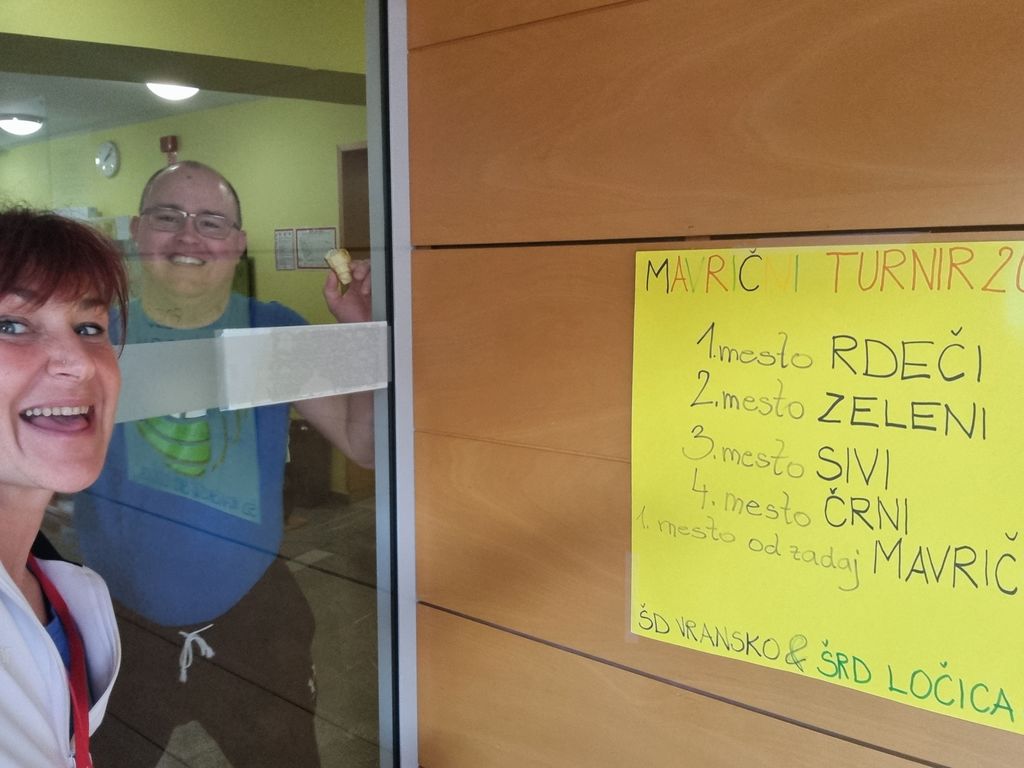 MAVRIČNI TURNIR 20
1. mesto RDEČI
2. mesto ZELENI
3. mesto SIVI
4. mesto ČRNI
1. mesto od zadaj MAVRIČ
ŠD VRANSKO & ŠRD LOČICA